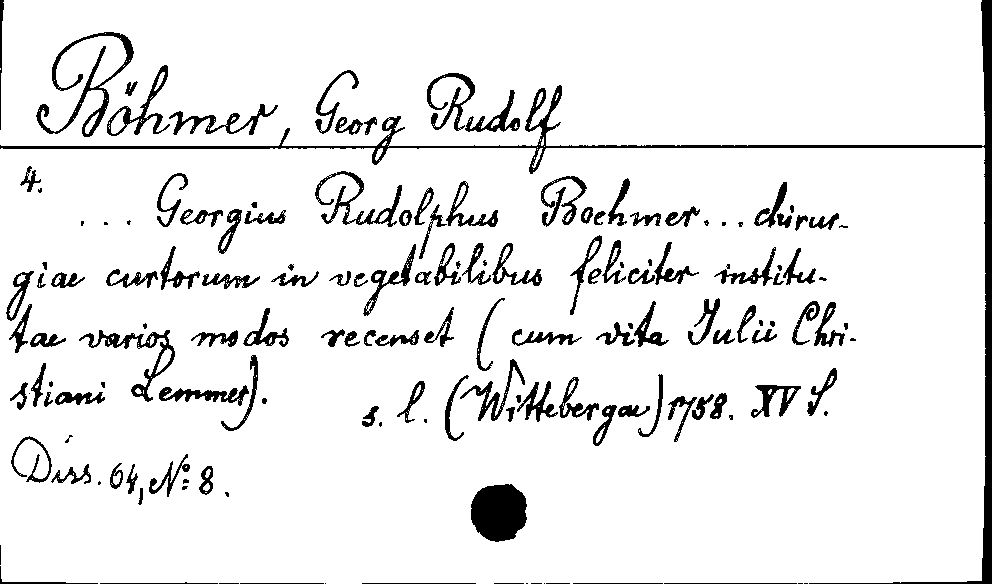 Böhmer, Georg Rudolf
4.
... Georgius Rudolphus Boehmer... chirur-
giae curtorum in vegetabilibus feliciter institu-
tae varios modos recenset (cum vita Julii Chri-
stiani Lemmer).
s. l. (Wittebergae) 1758. XV S.
Diss. 64, No: 8.